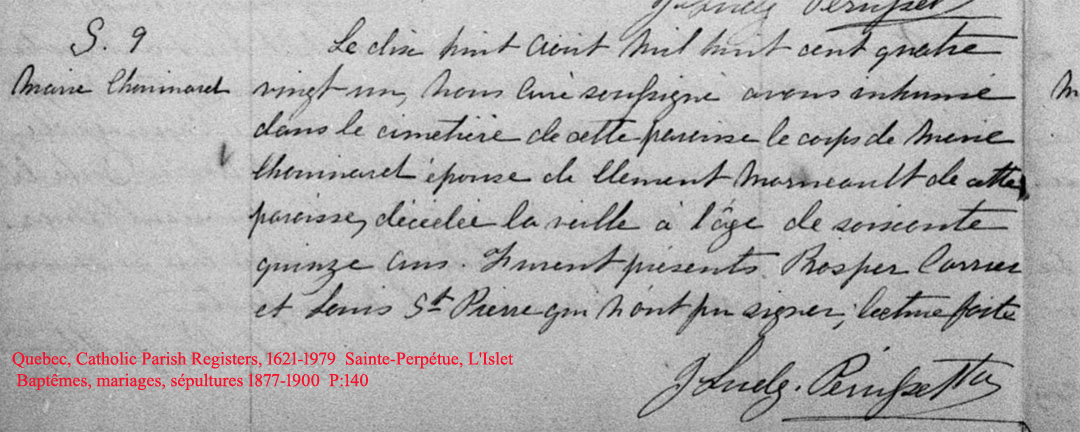 S. 9
Marie Chouinard
Le dix huit Aout Mil huit cent quatre
vingt un, Nous Curé soussigné avons inhumé
dans le cimetière de cette paroisse le corps de Marie
Chouinard épouse de Clément Morneault de cette
paroisse, décédée la veille à l'âge de soixante
quinze ans. Furent présents Prosper Carrier
et Louis St Pierre qui n'ont pu signer, lecture faite
Quebec, Catholic Parish Registers, 1621-1979 Sainte-Perpétue, L'Islet
Baptêmes, mariages, sépultures 1877-1900 P:140